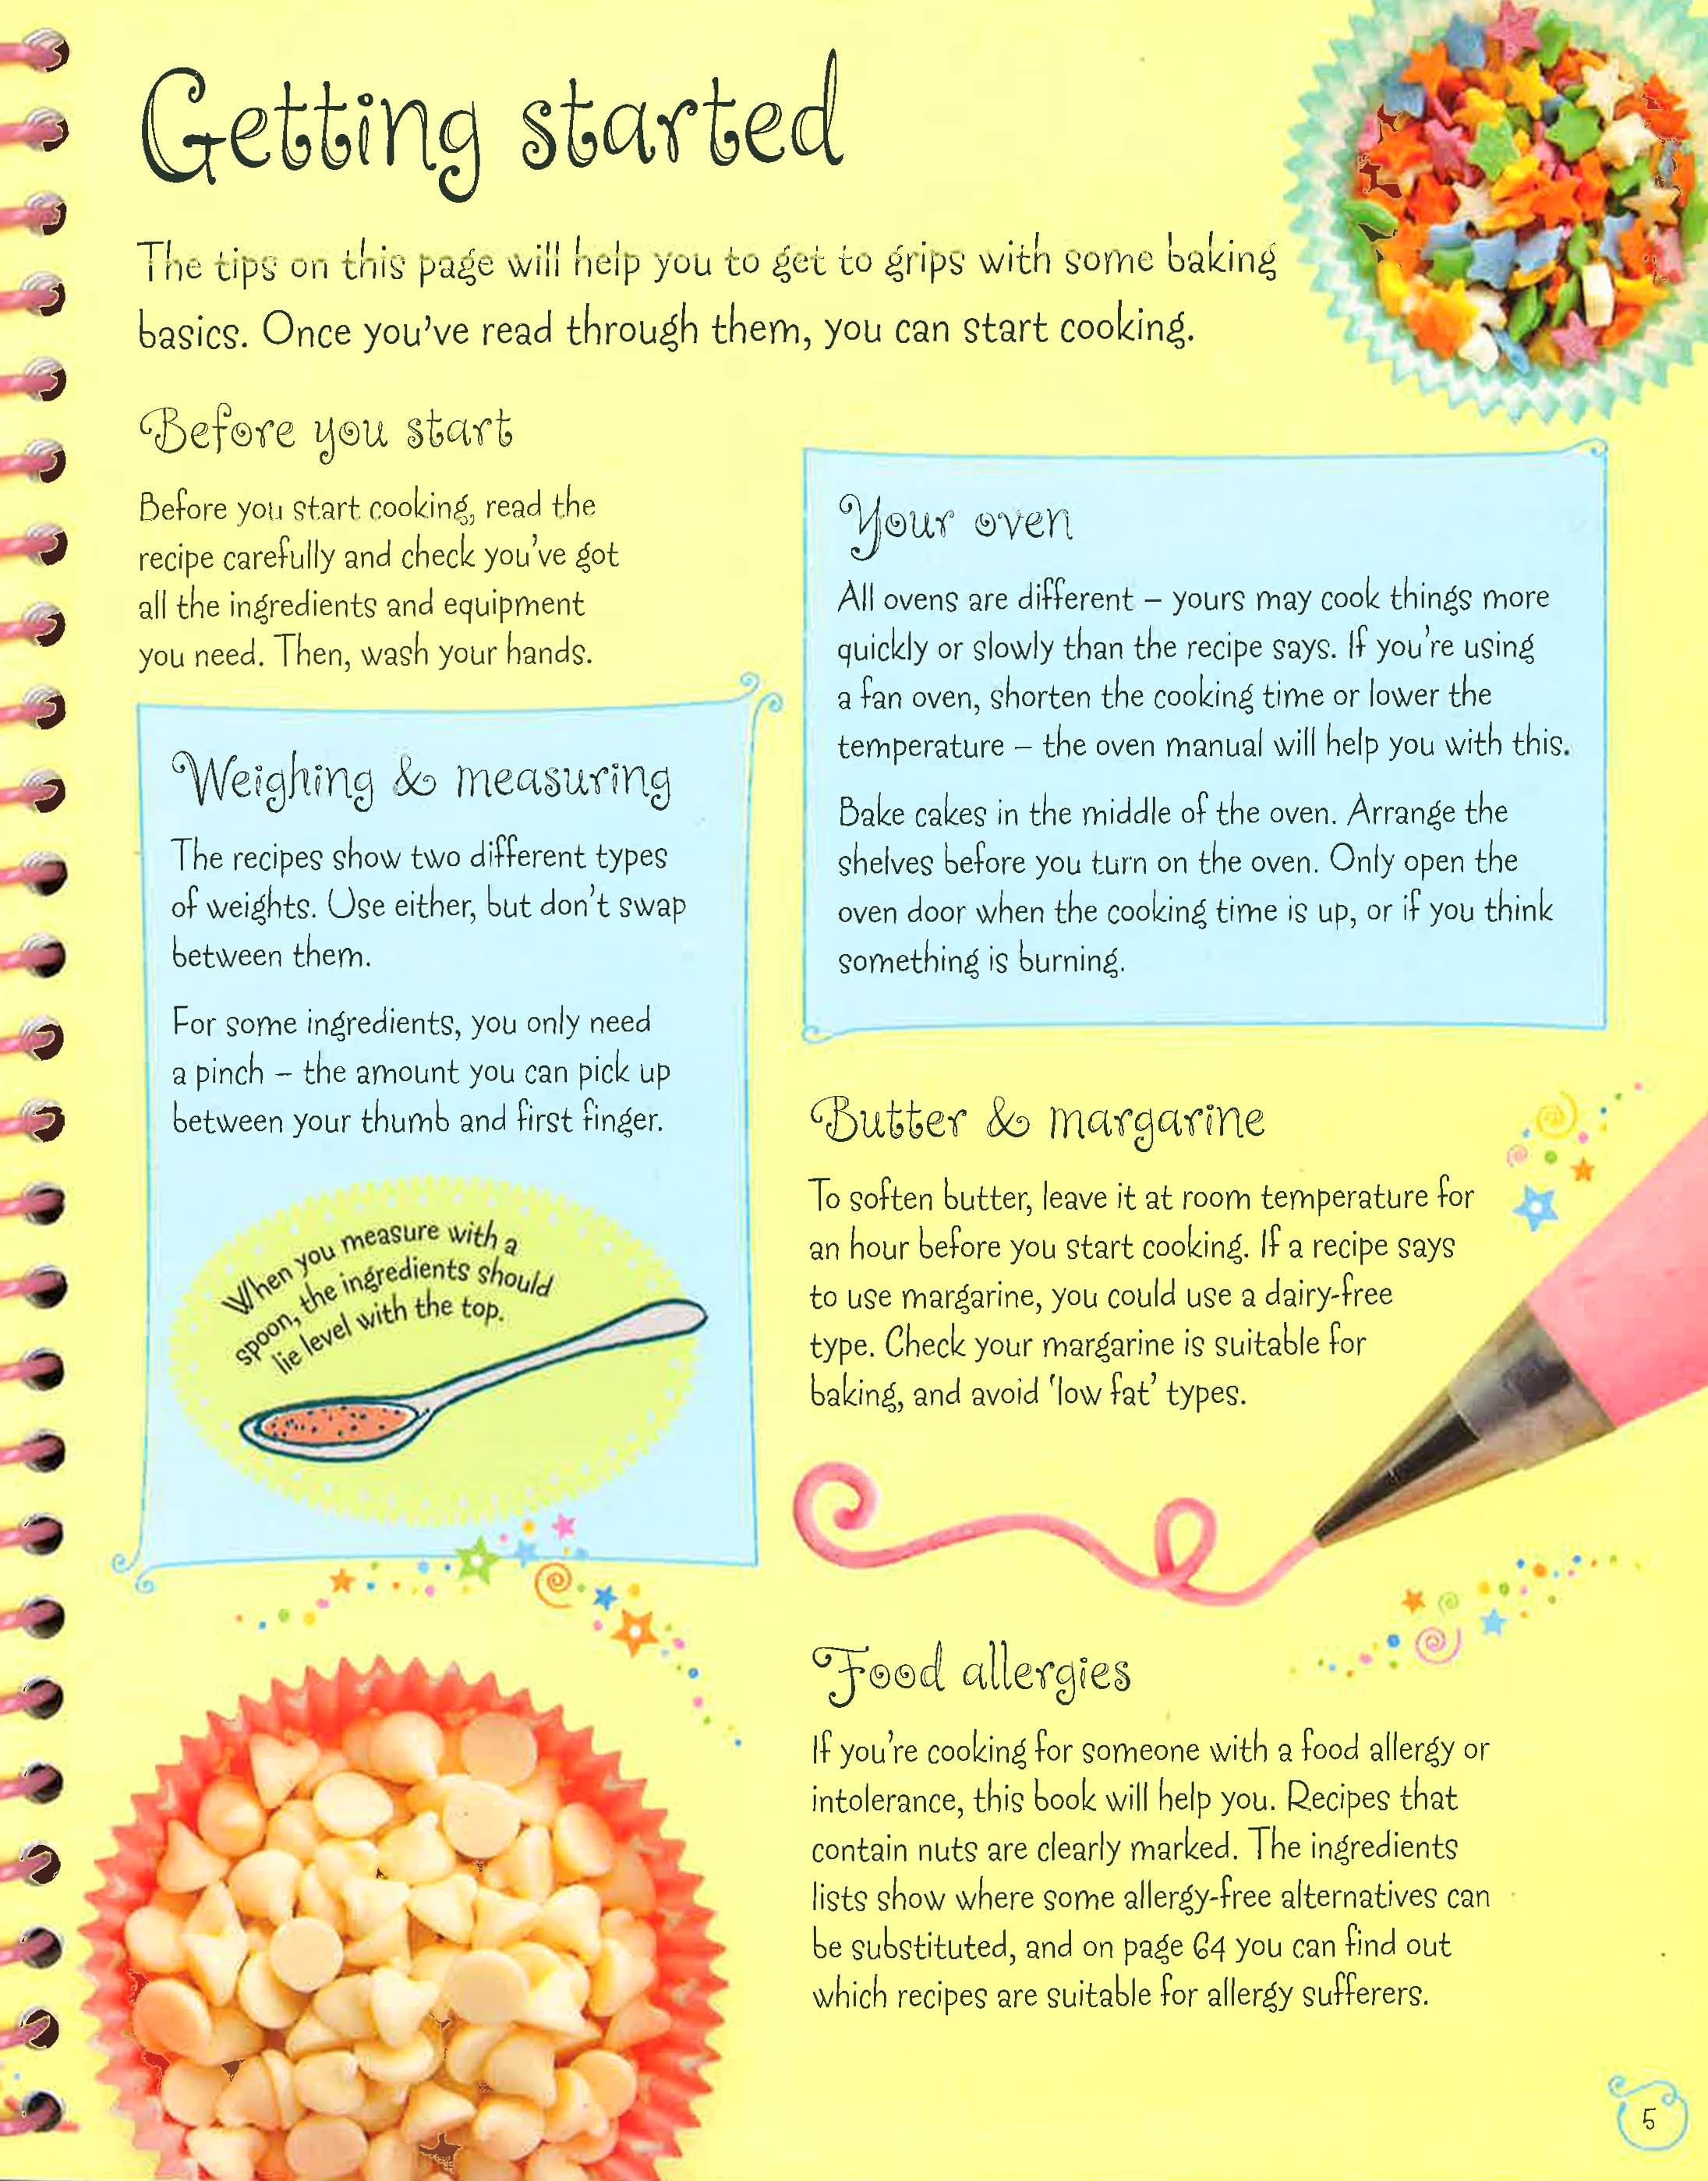 Getting started
The tips on this page will help you to get to grips with some baking
basics. Once you've read through them, you can start cooking.
Before you start
Before you start cooking, read the
recipe carefully and check you've got
all the ingredients and equipment
you need. Then, wash your hands.
Weighing & measuring
The recipes show two different types
of weights. Use either, but don't swap
between them.
For some ingredients, you only need
a pinch – the amount you can pick up
between your thumb and first finger.
When you measure with a
spoon, the ingredients should
lie level with the top.
Your oven
All ovens are different – yours may cook things more
quickly or slowly than the recipe says. If you're using
a fan oven, shorten the cooking time or lower the
temperature – the oven manual will help you with this.
Bake cakes in the middle of the oven. Arrange the
shelves before you turn on the oven. Only open the
oven door when the cooking time is up, or if you think
something is burning.
Butter & margarine
To soften butter, leave it at room temperature for
an hour before you start cooking. If a recipe says
to use margarine, you could use a dairy-free
type. Check your margarine is suitable for
baking, and avoid 'low fat' types.
Food allergies
If you're cooking for someone with a food allergy or
intolerance, this book will help you. Recipes that
contain nuts are clearly marked. The ingredients
lists show where some allergy-free alternatives can
be substituted, and on page 64 you can find out
which recipes are suitable for allergy sufferers.
5